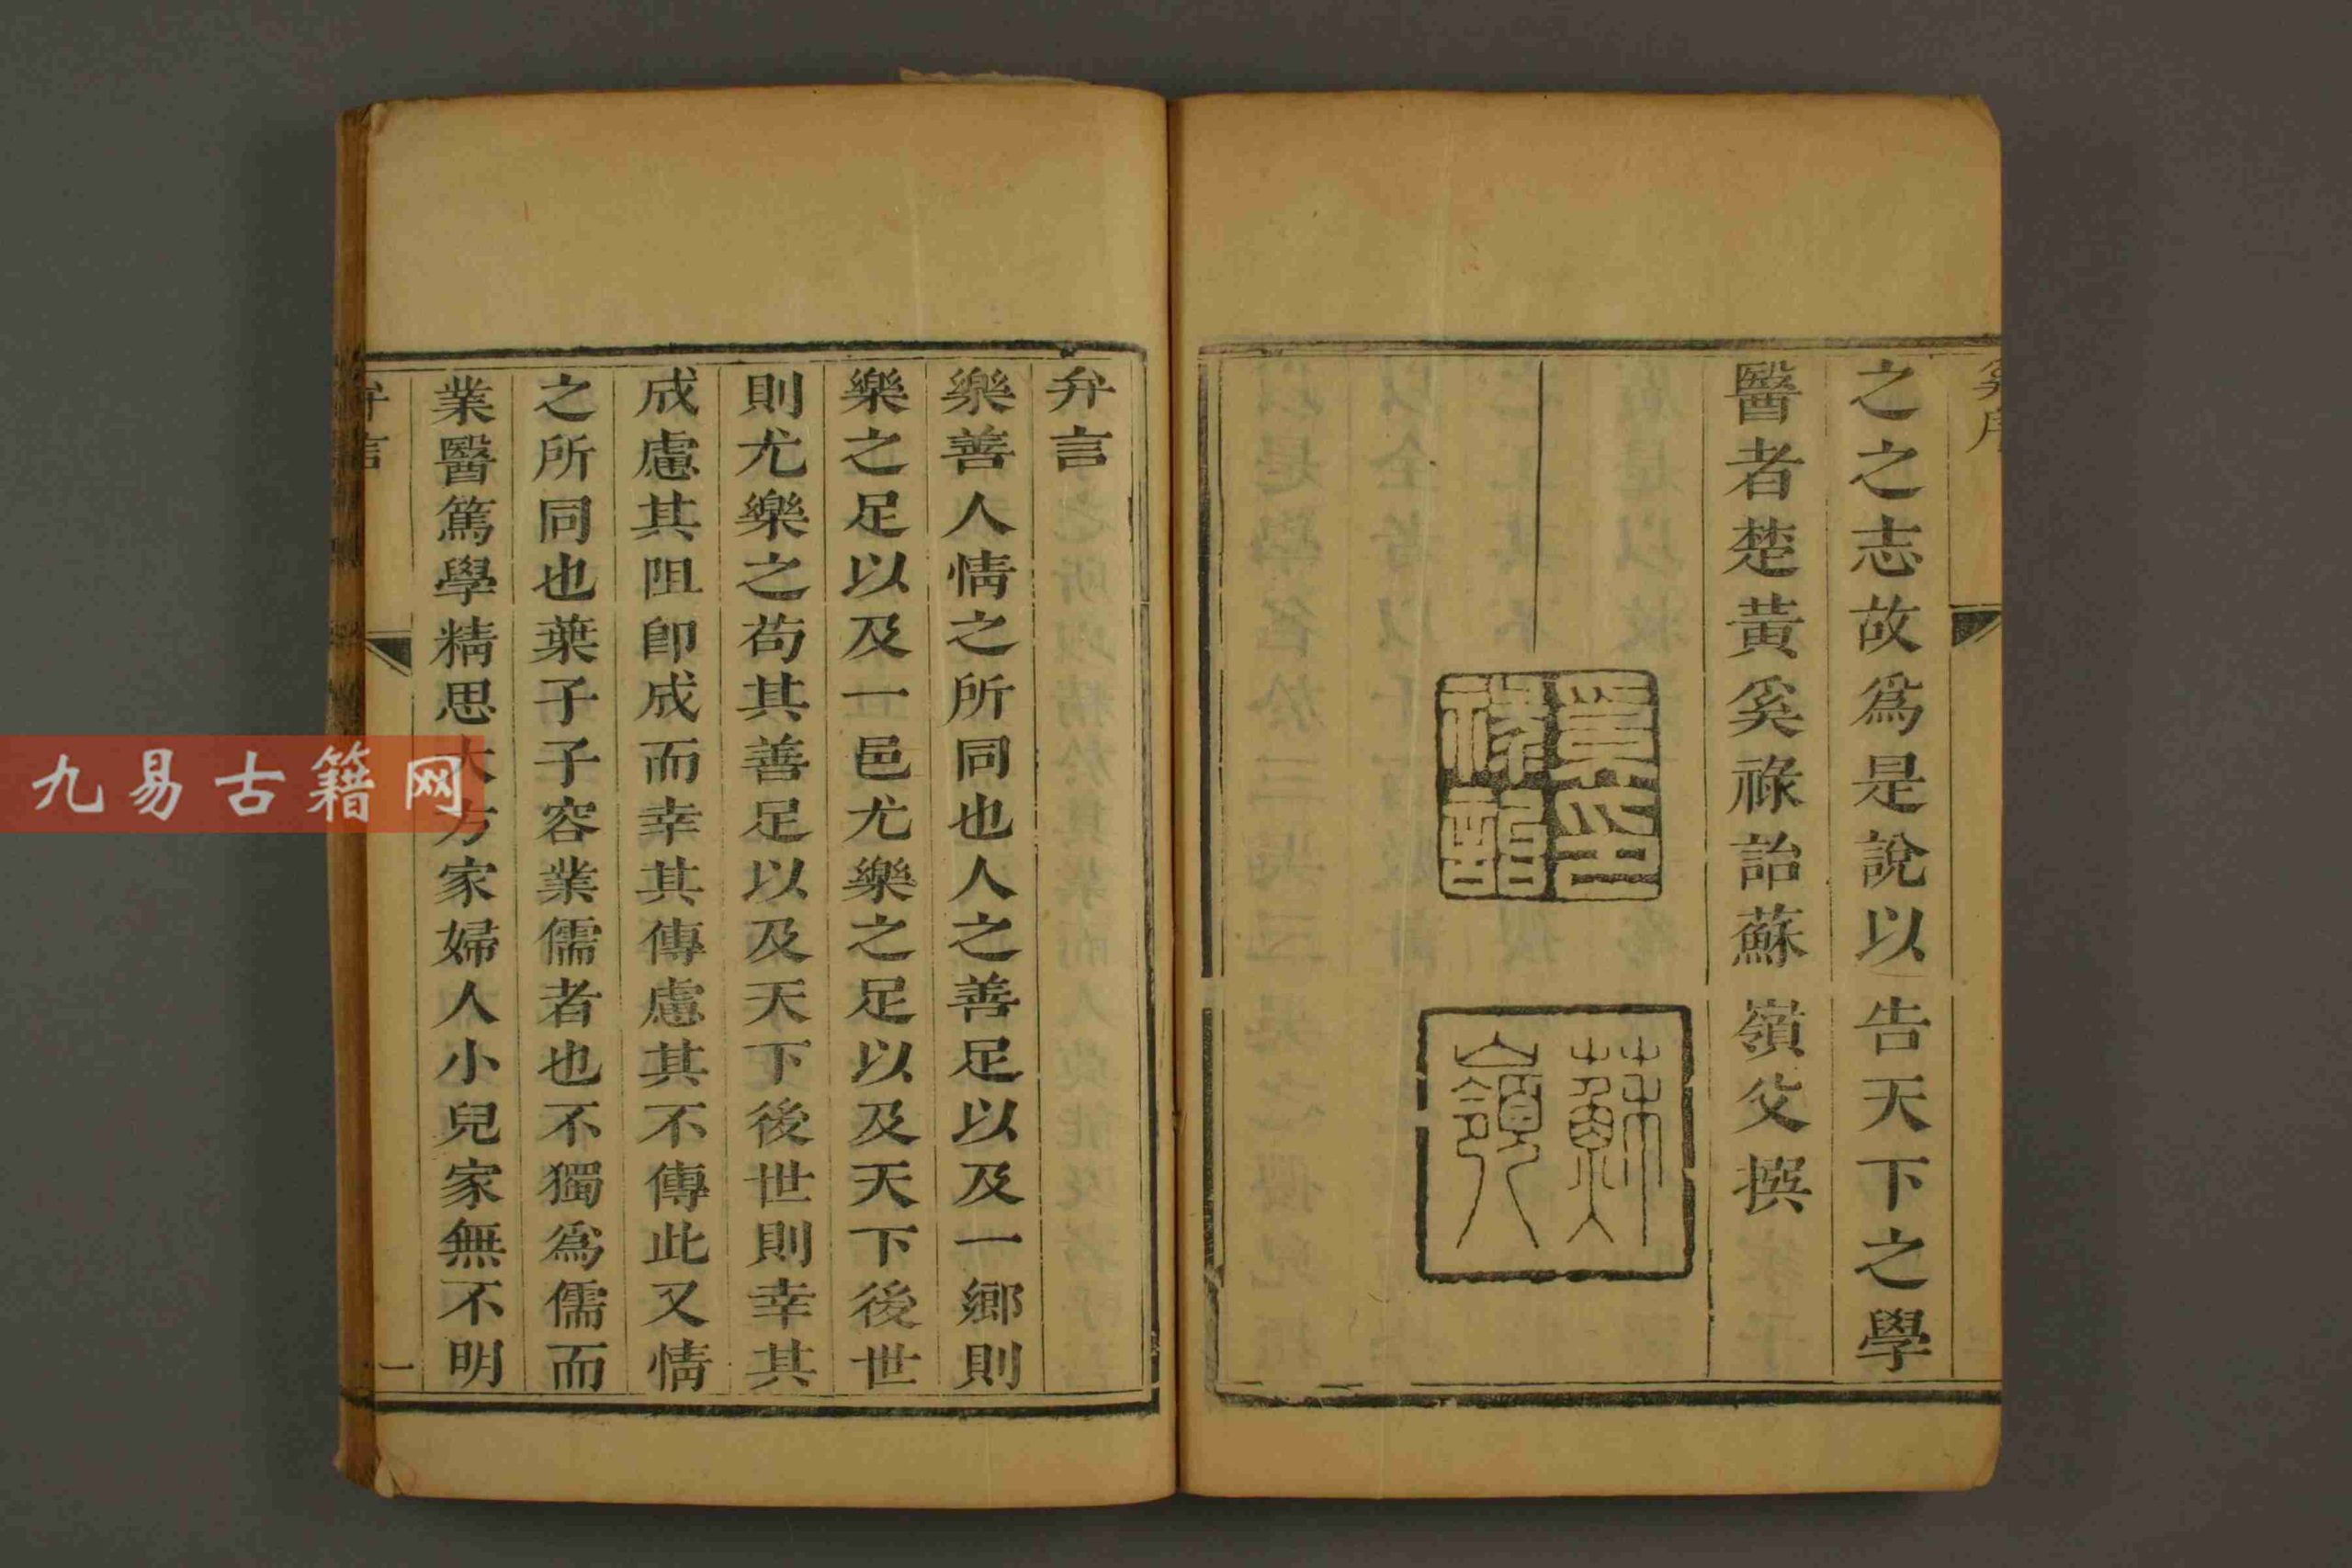 奚序
之之志故爲是說以告天下之學
醫者楚黃奚祿詒蘇嶺父撰
奚祿詒印
蘇嶺
弁言
樂善人情之所同也人之善足以及一鄉則
樂之足以及一邑尤樂之足以及天下後世
則尤樂之苟其善足以及天下後世則幸其
成慮其阻卽成而幸其傳慮其不傳此又情
之所同也葉子子容業儒者也不獨爲儒而
業醫篤學精思大方家婦人小兒家無不明
弁言
一
九易古籍网